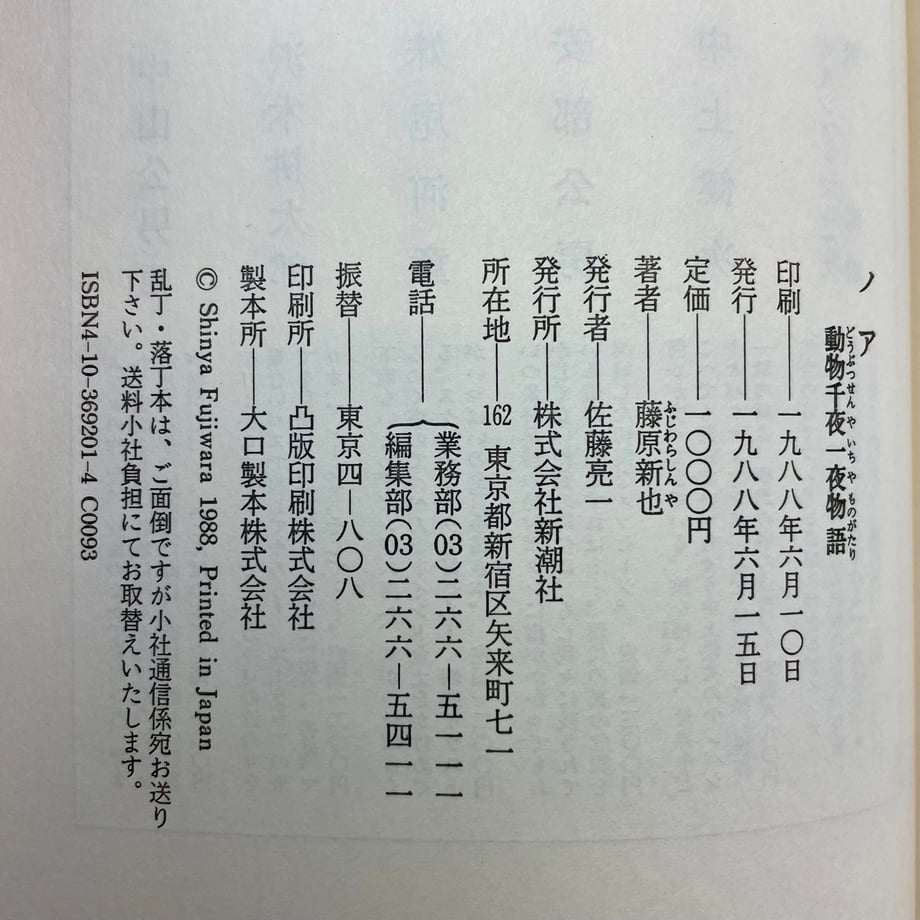 ノア
動物千夜一夜物語
どうぶつせんやいちやものがたり
印刷――一九八八年六月一〇日
発行――一九八八年六月一五日
定価――一〇〇〇円
著者――藤原新也
ふじわらしんや
発行者――佐藤亮一
発行所――株式会社新潮社
所在地――162 東京都新宿区矢来町七一
電話――業務部(03)二六六―五一一一
編集部(03)二六六―五四一一
振替――東京四―八〇八
印刷所――凸版印刷株式会社
製本所――大口製本株式会社
© Shinya Fujiwara 1988, Printed in Japan
乱丁・落丁本は、ご面倒ですが小社通信係宛お送り
下さい。送料小社負担にてお取替えいたします。
ISBN4-10-369201-4 C0093